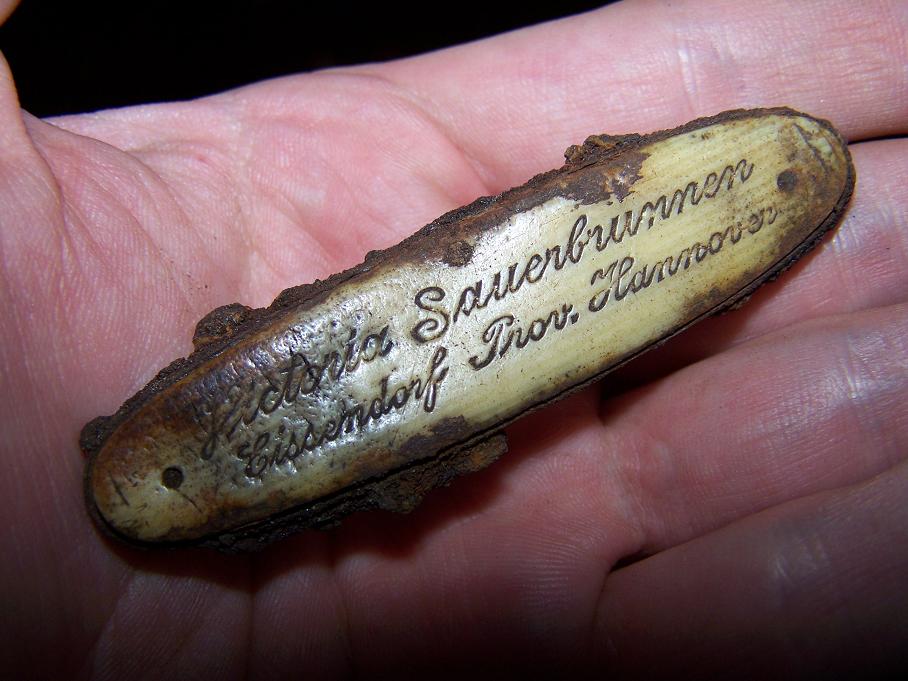 Victoria Sauerbrunnen
Eissendorf Prov. Hannover